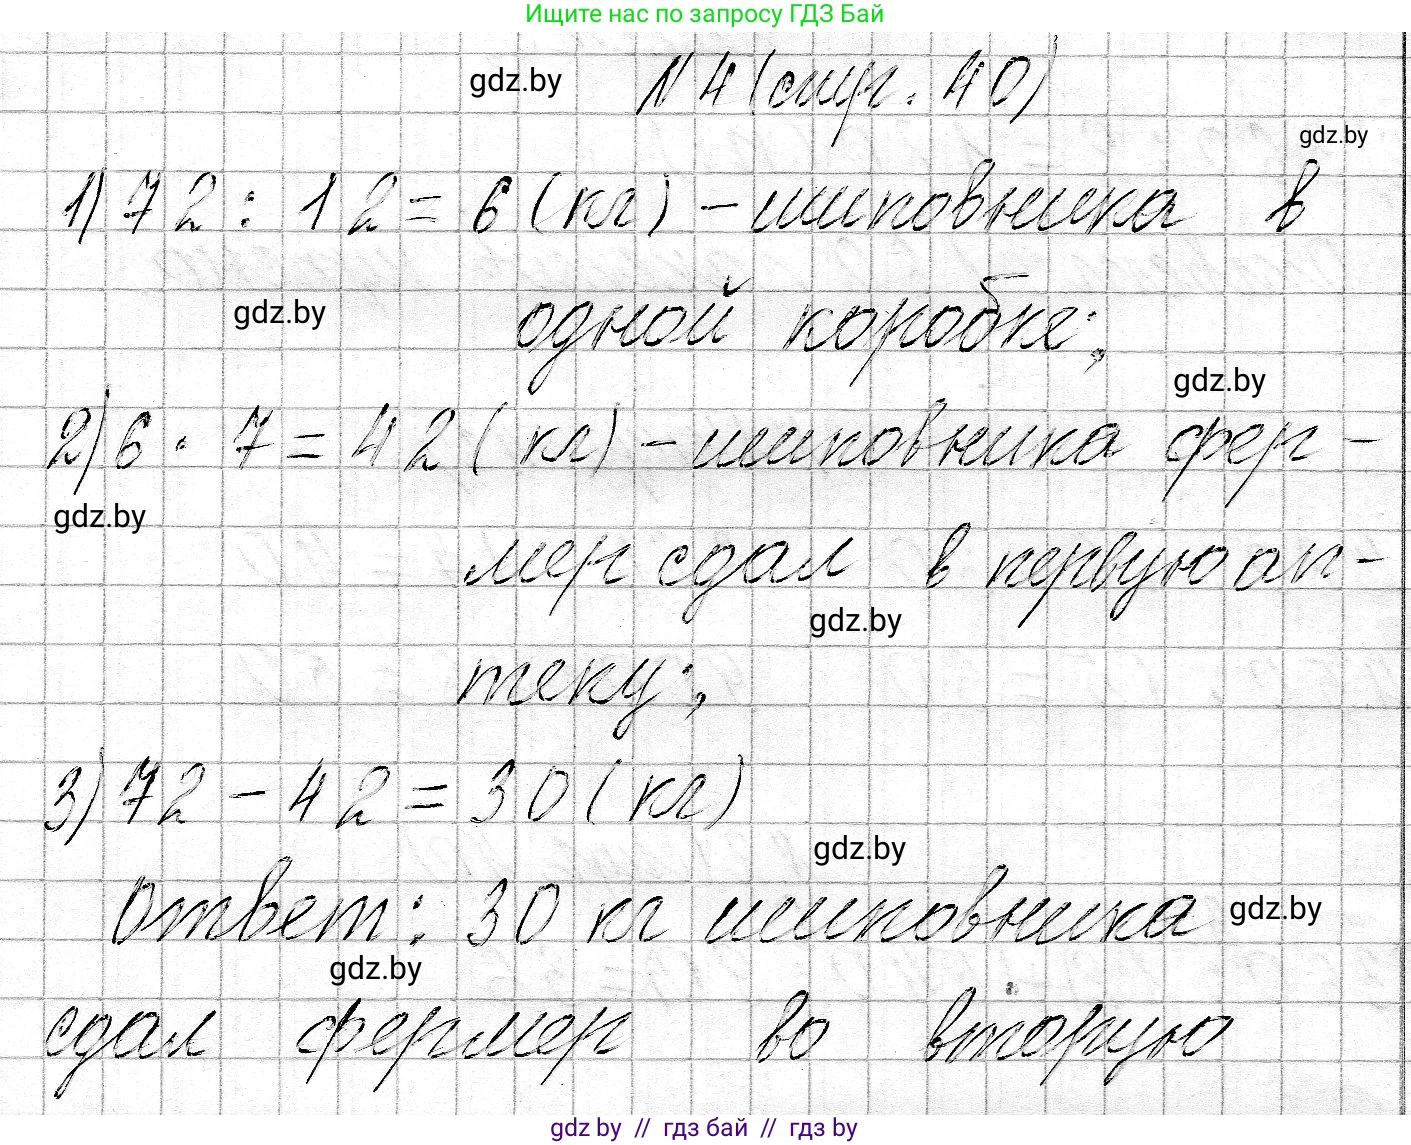 Ищите нас по запросу ГДЗ Бай
gdz.by
№4 (стр. 40)
gdz.by
1) 72 : 12 = 6 (кг) – шиповника в
gdz.by
одной коробке;
gdz.by
2) 6 · 7 = 42 (кг) – шиповника фер–
gdz.by
мер сдал в первую ап–
gdz.by
теку;
3) 72 – 42 = 30 (кг)
gdz.by
Ответ: 30 кг шиповника
gdz.by
gdz.by
сдал фермер во вторую
gdz.by // гдз бай // гдз by